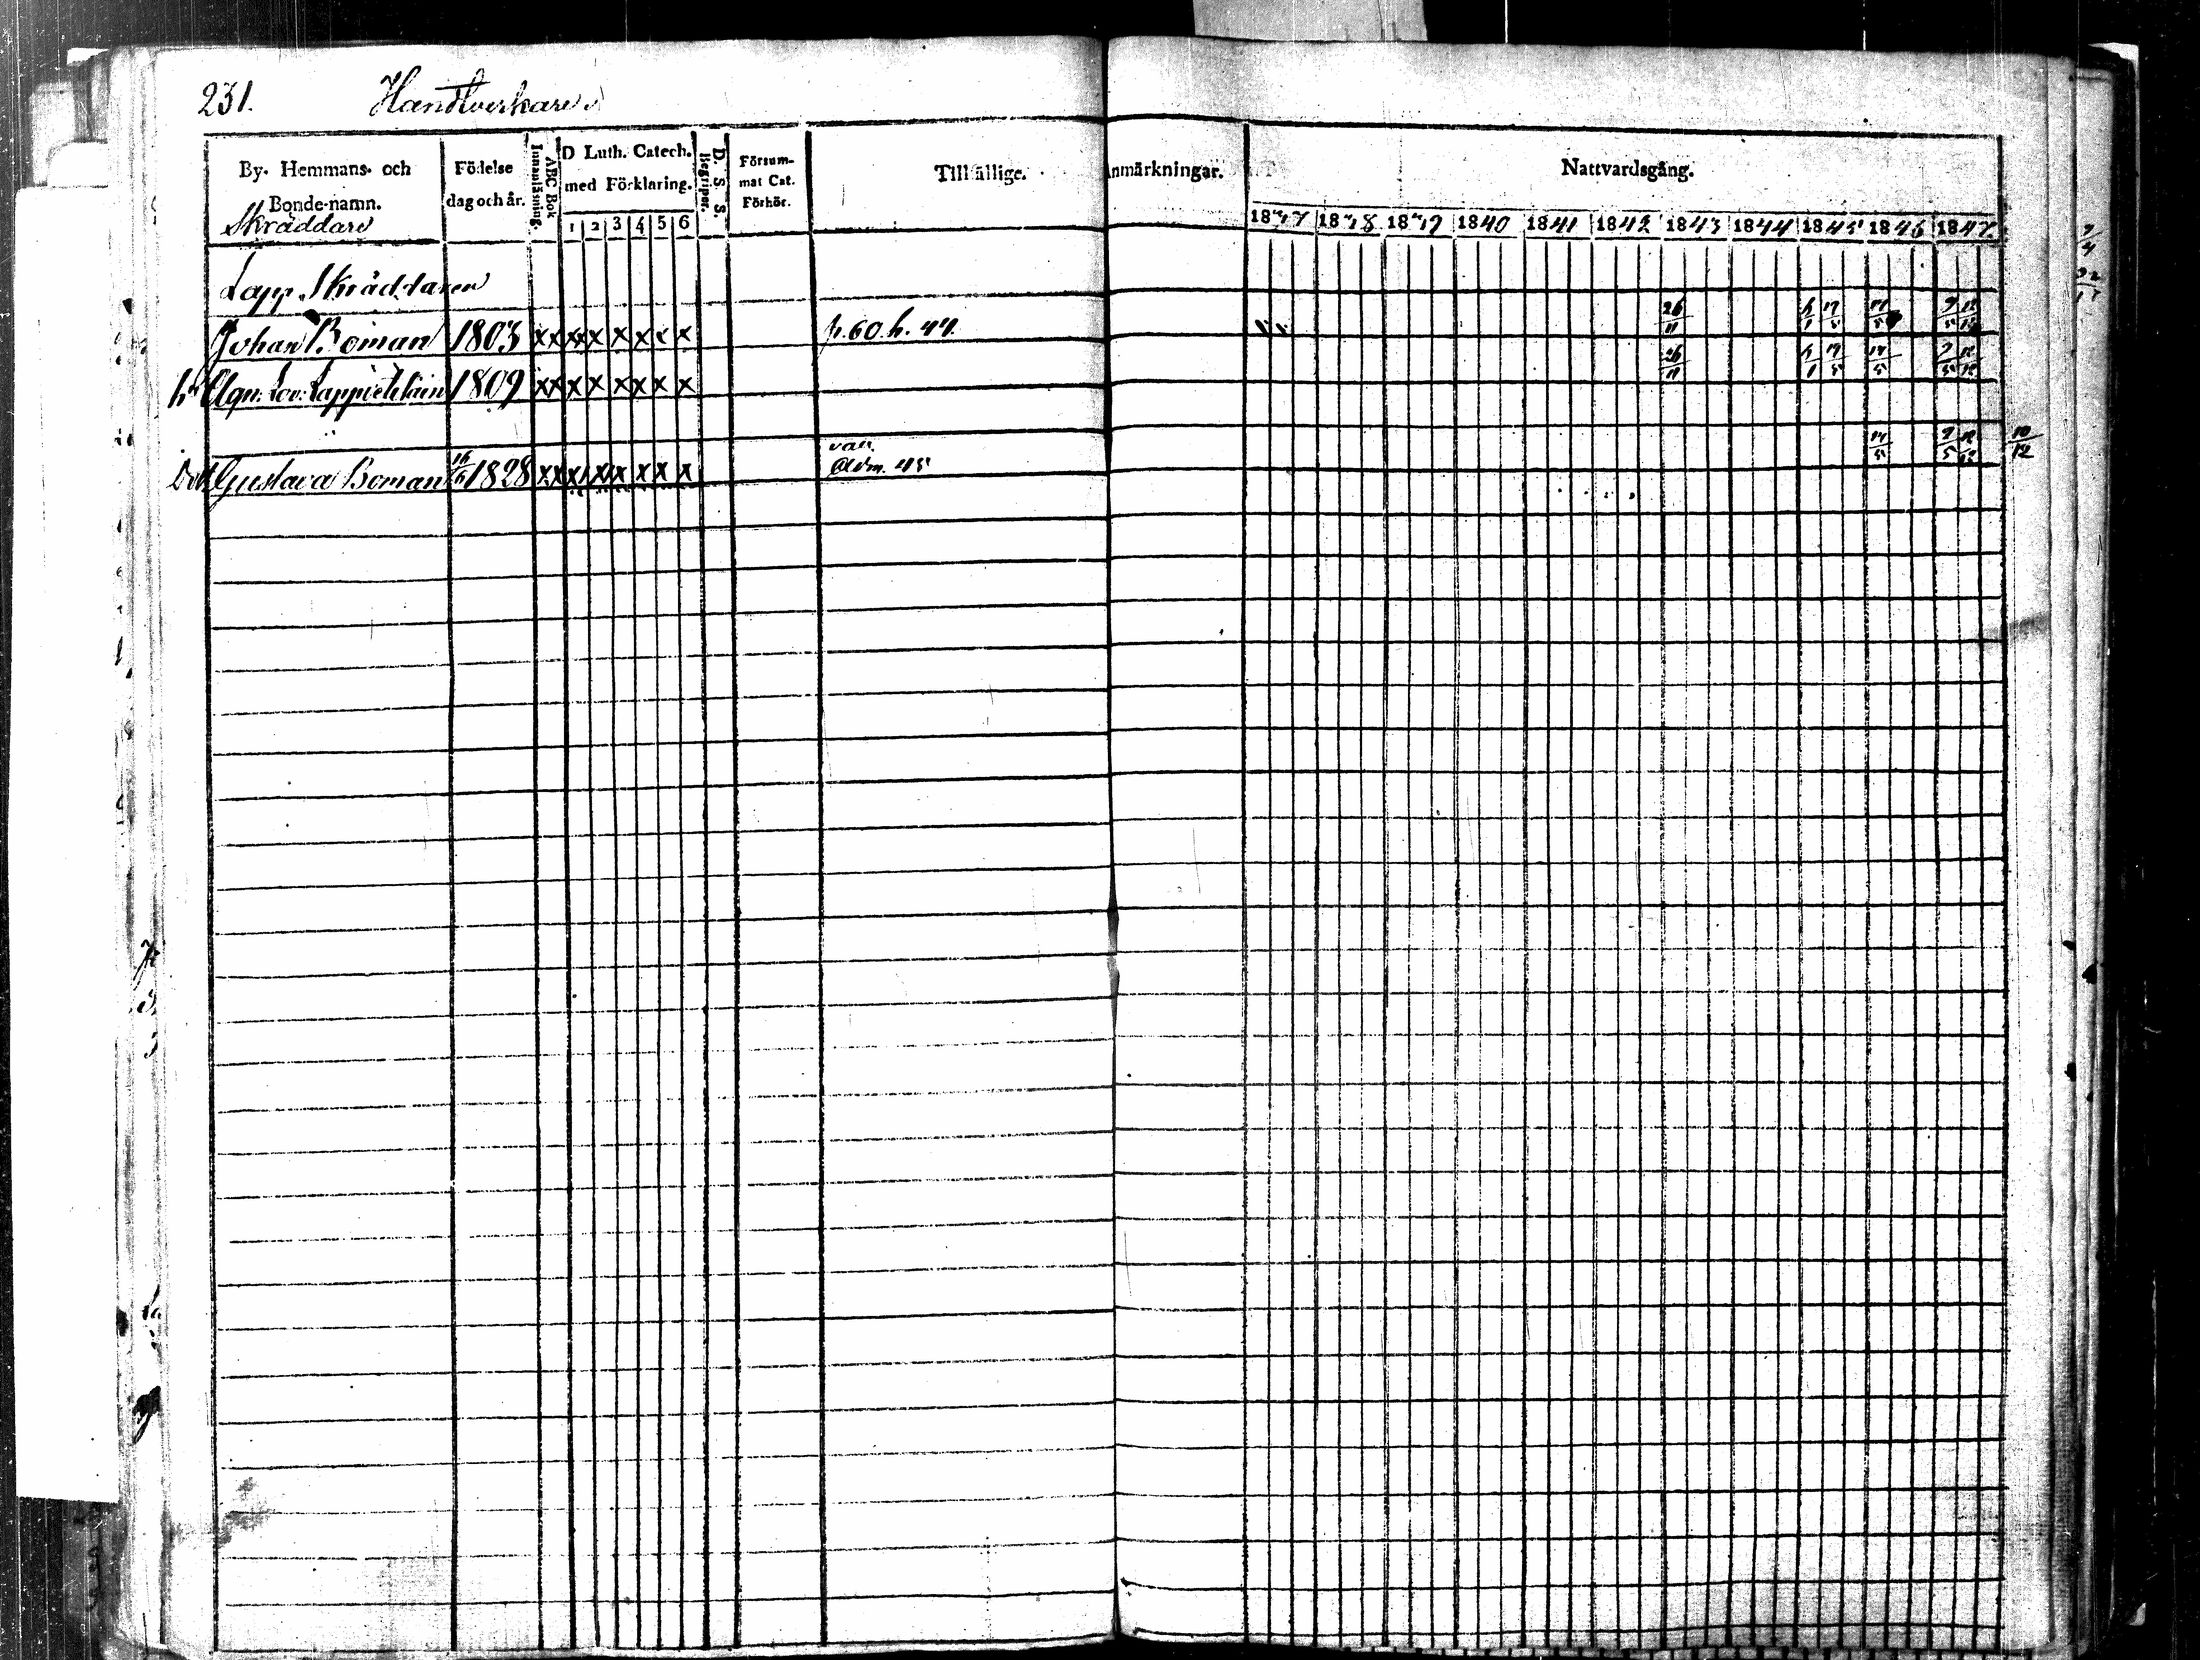 231. Handtverkare
By. Hemmans- och Bonde-namn.
Skräddare
Födelse dag och år.
ABC Bok
Innanläsning.
D Luth. Catech.
med Förklaring.
1 2 3 4 5 6
D. S. S.
Begriper.
Försum-
mat Cat.
Förhör.
Tillfällige. Anmärkningar.
Nattvardsgång.
1837 1838 1839 1840 1841 1842 1843 1844 1845 1846 1847
Lapp Skräddaren
Johan Boman 1803 x x x x x x x x p. 60. h. 44 26/11 17/5 17/5 9/5 12/12
h Agn: Lov: 1809 x x x x x x x x 26/11 17/5 17/5 9/5 12/12
Dott. Gustava Boman 16/6 1828 x x x x x x x x vacc. 17/5 9/5 12/12 10/12